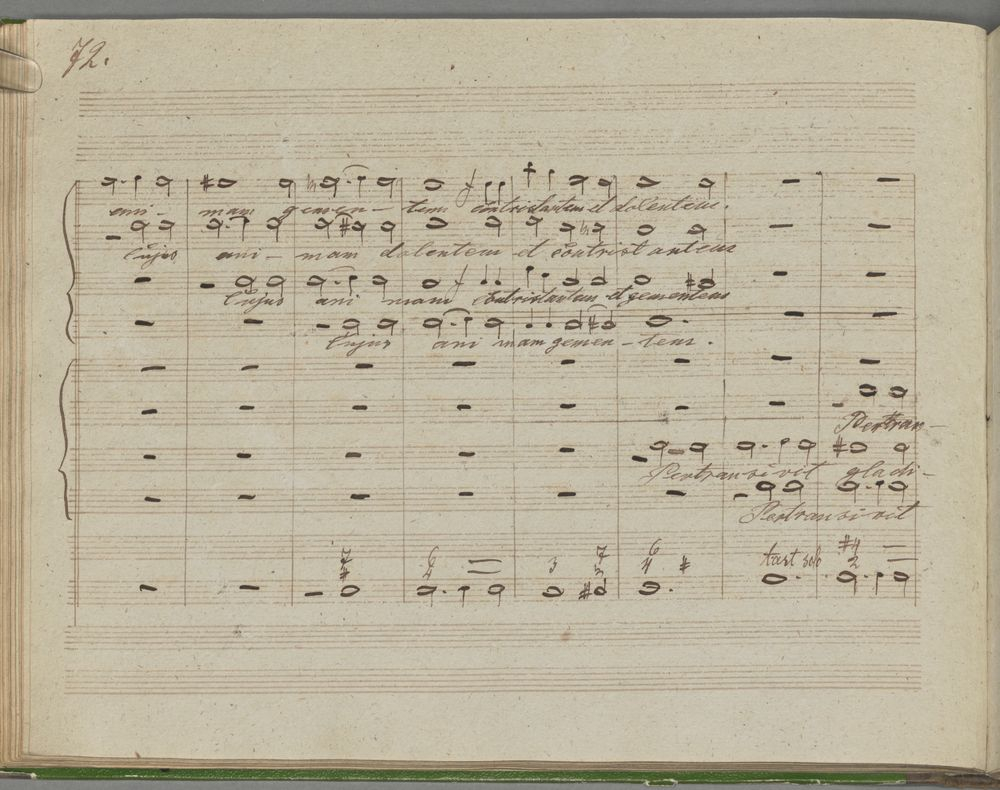 72.
ani - mam gemen - tem contristantem et dolentem.
Cujus ani - mam dolentem et contristantem
Cujus ani mam contristantem et gementem
Cujus ani mam gemen - tem.
Pertran -
Pertransivit gladi -
Pertransivit
7 6 3 7 6 tast solo #4
# 4 5 4 # 2